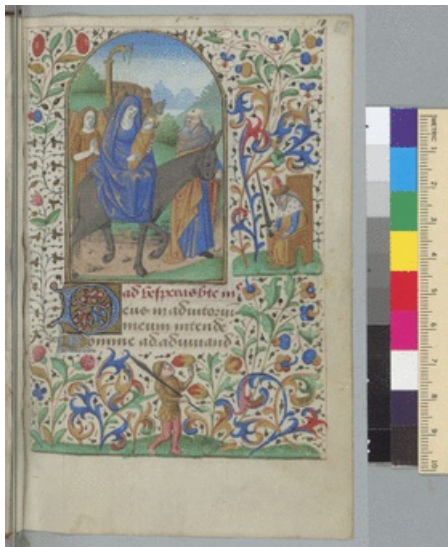 ad vesperas bte m
Deus in adiutoriu
meum intende
Domine ad adiuuand